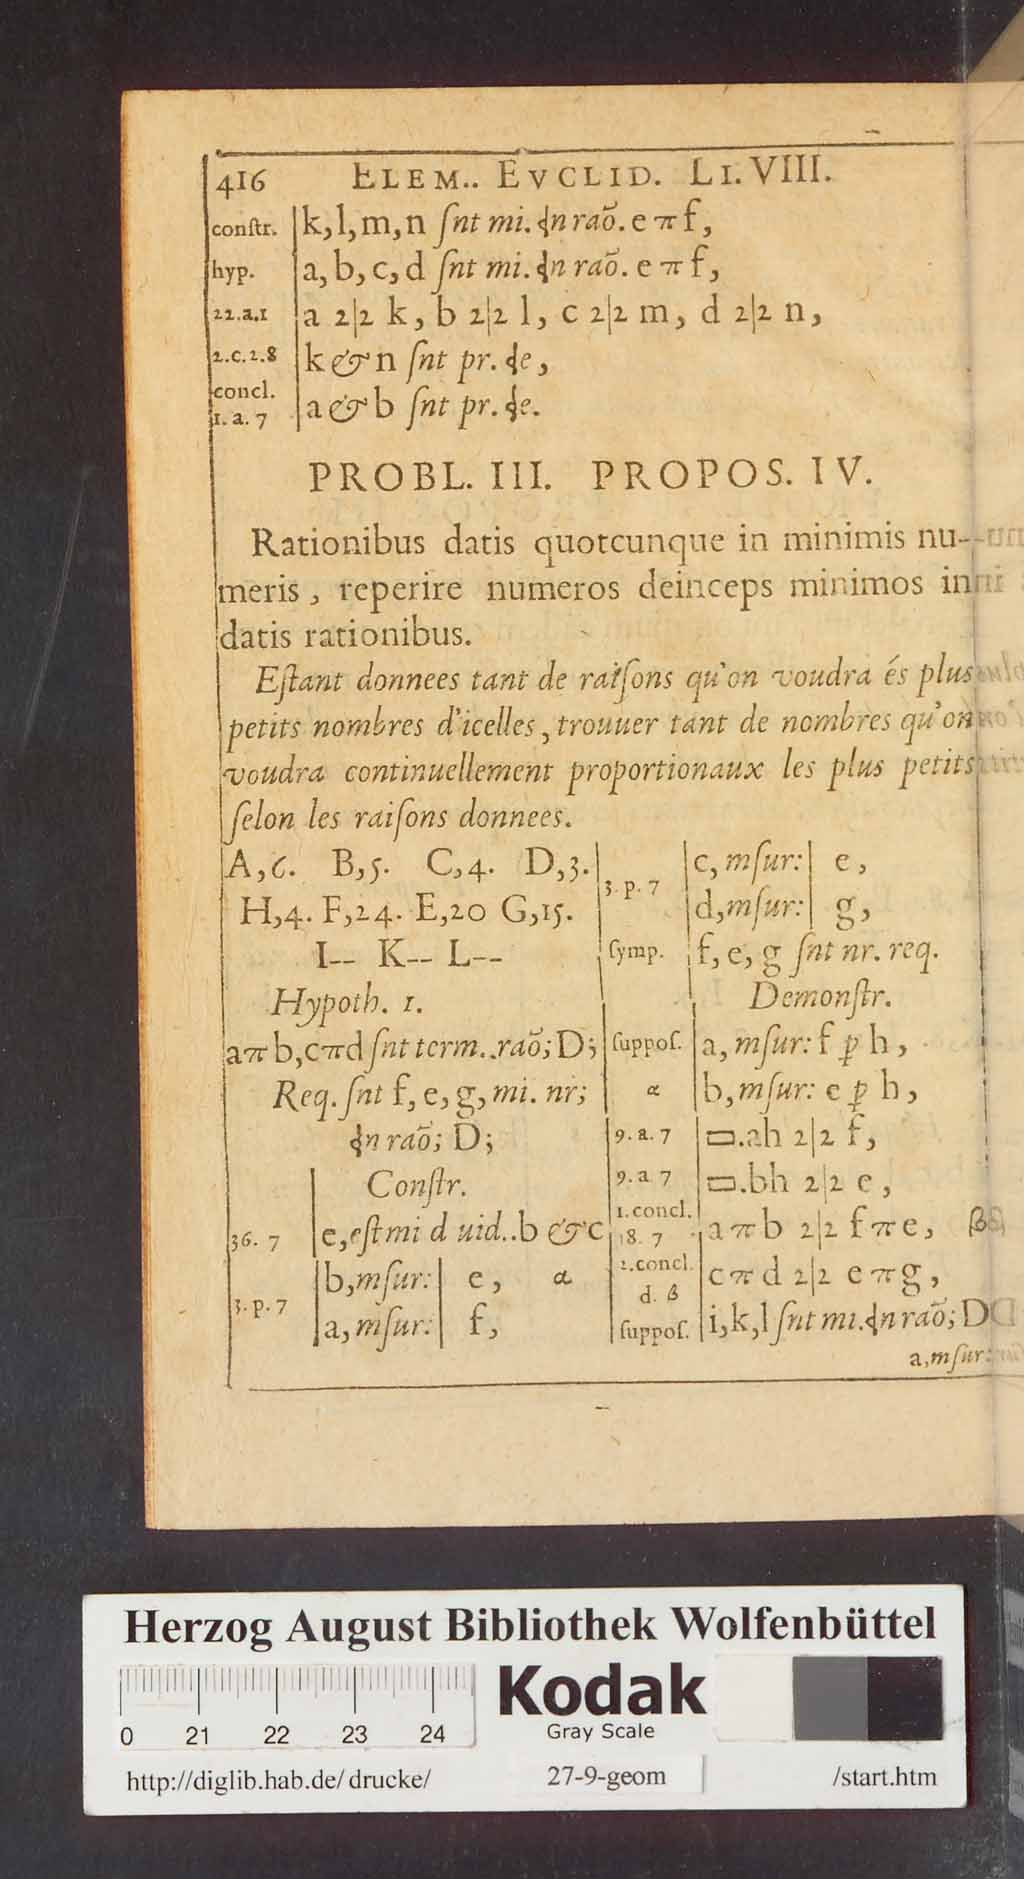 416 ELEM.. EVCLID. LI. VIII.
constr. k, l, m, n ſnt mi. ɖn raõ. e π f,
hyp. a, b, c, d ſnt mi. ɖn raõ. e π f,
22.a.1 a 2|2 k, b 2|2 l, c 2|2 m, d 2|2 n,
2.c.2.8 k & n ſnt pr. ɖe,
concl.
1. a. 7 a & b ſnt pr. ɖe.
PROBL. III. PROPOS. IV.
Rationibus datis quotcunque in minimis nu-
meris, reperire numeros deinceps minimos in
datis rationibus.
Eſtant donnees tant de raiſons qu'on voudra és plus
petits nombres d'icelles, trouuer tant de nombres qu'on
voudra continuellement proportionaux les plus petits
ſelon les raiſons donnees.
A,6. B,5. C,4. D,3.
H,4. F,24. E,20 G,15.
I-- K-- L--
Hypoth. 1.
a π b, c π d ſnt term. raõ; D;
Req. ſnt f, e, g, mi. nr;
ɖn raõ; D;
Conſtr.
36. 7 e, eſt mi d uid.. b & c
3. p. 7 b, mſur: e, α
a, mſur: f,
3. p. 7 c, mſur: e,
d, mſur: g,
ſymp. f, e, g ſnt nr. req.
Demonſtr.
ſuppoſ. a, mſur: f ꝑ h,
α b, mſur: e ꝑ h,
9. a. 7 ▭.ah 2|2 f,
9. a 7 ▭.bh 2|2 e,
1. concl.
18. 7 a π b 2|2 f π e, β
2. concl.
d. β c π d 2|2 e π g,
ſuppoſ. i, k, l ſnt mi. ɖn raõ; D
a, mſur:
Herzog August Bibliothek Wolfenbüttel
Kodak
Gray Scale
0 21 22 23 24
http://diglib.hab.de/drucke/ 27-9-geom /start.htm